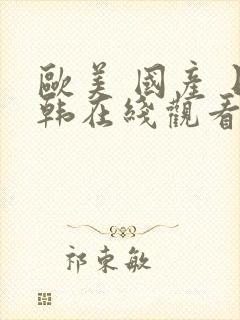 歐美 國產
韩在綫觀看
祁東敏